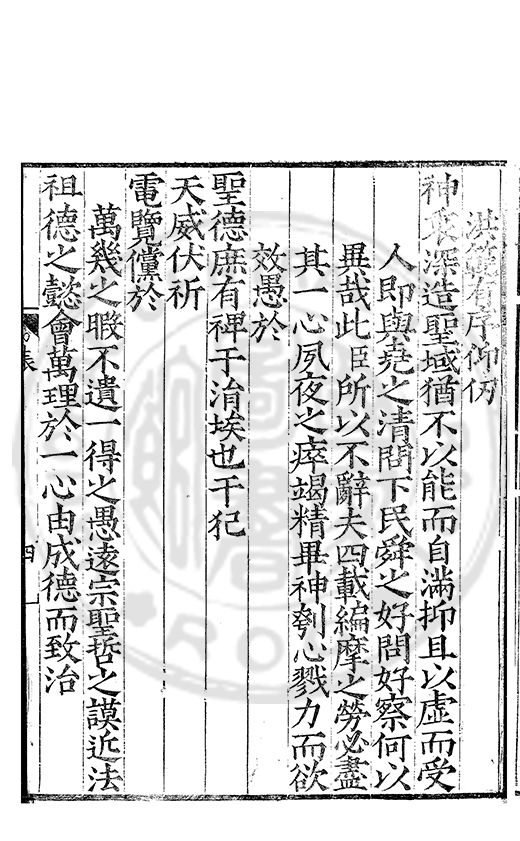 洪範有序仰仞
神衷深造聖域猶不以能而自滿抑且以虛而受
人即與堯之清問下民舜之好問好察何以
異哉此臣所以不辭夫四載編摩之勞必盡
其一心夙夜之瘁竭精畢神刳心戮力而欲
效愚於
聖德庶有裨于涓埃也干犯
天威伏祈
電覽儻於
萬幾之暇不遺一得之愚遠宗聖哲之謨近法
祖德之懿會萬理於一心由成德而致治
表
四